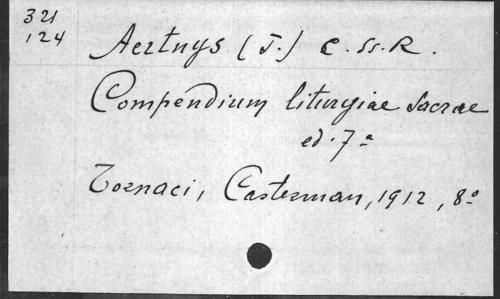 321
124
Aertnys (J.) C.SS.R.
Compendium liturgiae sacrae
ed. 7ª
Tornaci, Casterman, 1912, 8º